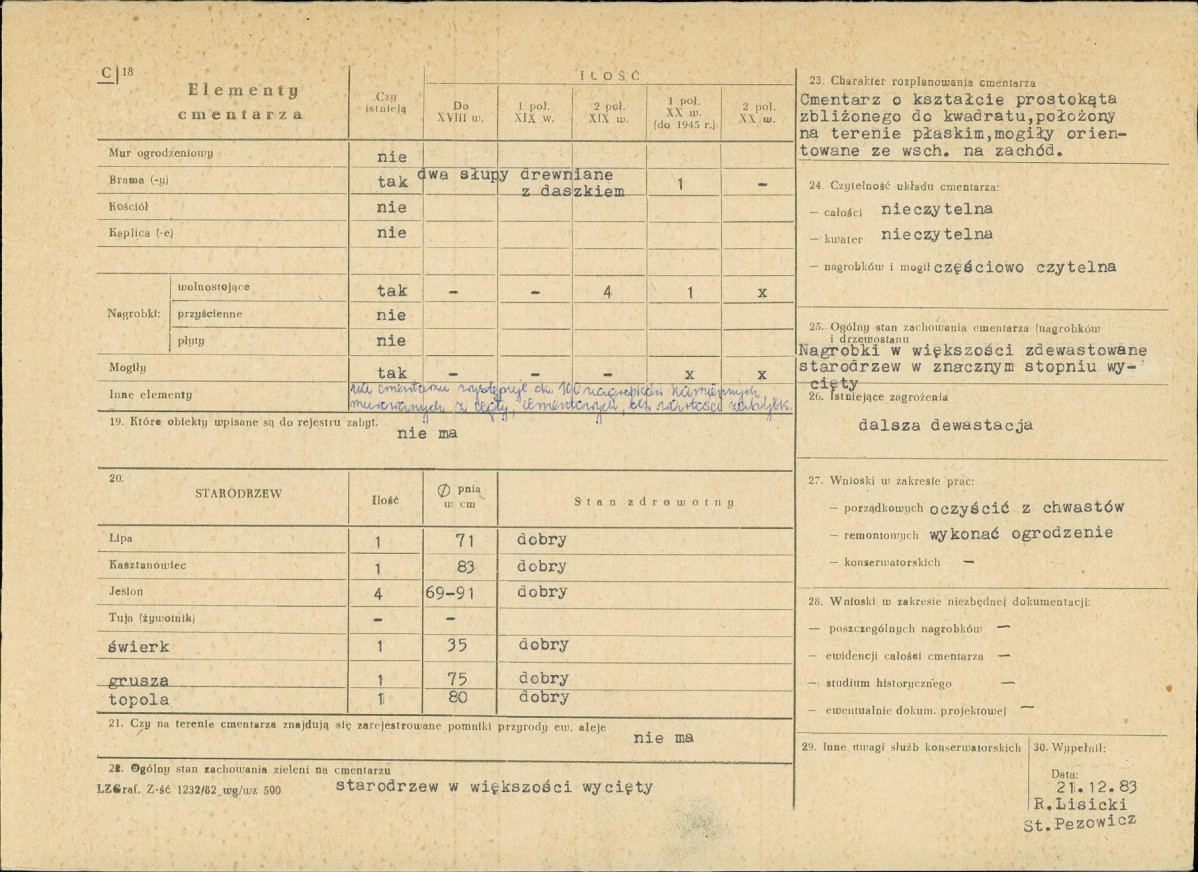 C 18
Elementy cmentarza
Czy istnieją
IŁOŚĆ
Do XVIII w.
1 poł. XIX w.
2 poł. XIX w.
1 poł. XX w. (do 1945 r.)
2 poł. XX w.
Mur ogrodzeniowy nie
Brama (-y) tak dwa słupy drewniane z daszkiem 1 –
Kościół nie
Kaplica (-e) nie
Nagrobki:
wolnostojące tak – – 4 1 x
przyścienne nie
płyty nie
Mogiły tak – – – x x
Inne elementy
cmentarzu występuje ok. 100 nagrobków kamiennych,
murowanych z cegły, cementowych, bez wartości zabytk.
19. Które obiekty wpisane są do rejestru zabyt.
nie ma
20.
STARODRZEW Ilość Ø pnia w cm Stan zdrowotny
Lipa 1 71 dobry
Kasztanowiec 1 83 dobry
Jesion 4 69-91 dobry
Tuja (żywotnik) – –
świerk 1 35 dobry
grusza 1 75 dobry
topola 1 80 dobry
21. Czy na terenie cmentarza znajdują się zarejestrowane pomniki przyrody ew. aleje
nie ma
22. Ogólny stan zachowania zieleni na cmentarzu
starodrzew w większości wycięty
LZGraf. Z-ść 1232/82 wg/wz 500
23. Charakter rozplanowania cmentarza
Cmentarz o kształcie prostokąta
zbliżonego do kwadratu,położony
na terenie płaskim,mogiły orien-
towane ze wsch. na zachód.
24. Czytelność układu cmentarza:
– całości nieczytelna
– kwater nieczytelna
– nagrobków i mogił częściowo czytelna
25. Ogólny stan zachowania cmentarza (nagrobków
i drzewostanu
Nagrobki w większości zdewastowane
starodrzew w znacznym stopniu wy-
cięty
26. Istniejące zagrożenia
dalsza dewastacja
27. Wnioski w zakresie prac:
– porządkowych oczyścić z chwastów
– remontowych wykonać ogrodzenie
– konserwatorskich –
28. Wnioski w zakresie niezbędnej dokumentacji:
– poszczególnych nagrobków –
– ewidencji całości cmentarza –
– studium historycznego –
– ewentualnie dokum. projektowej –
29. Inne uwagi służb konserwatorskich
30. Wypełnił:
Data:
21.12.83
R.Lisicki
St.Pezowicz